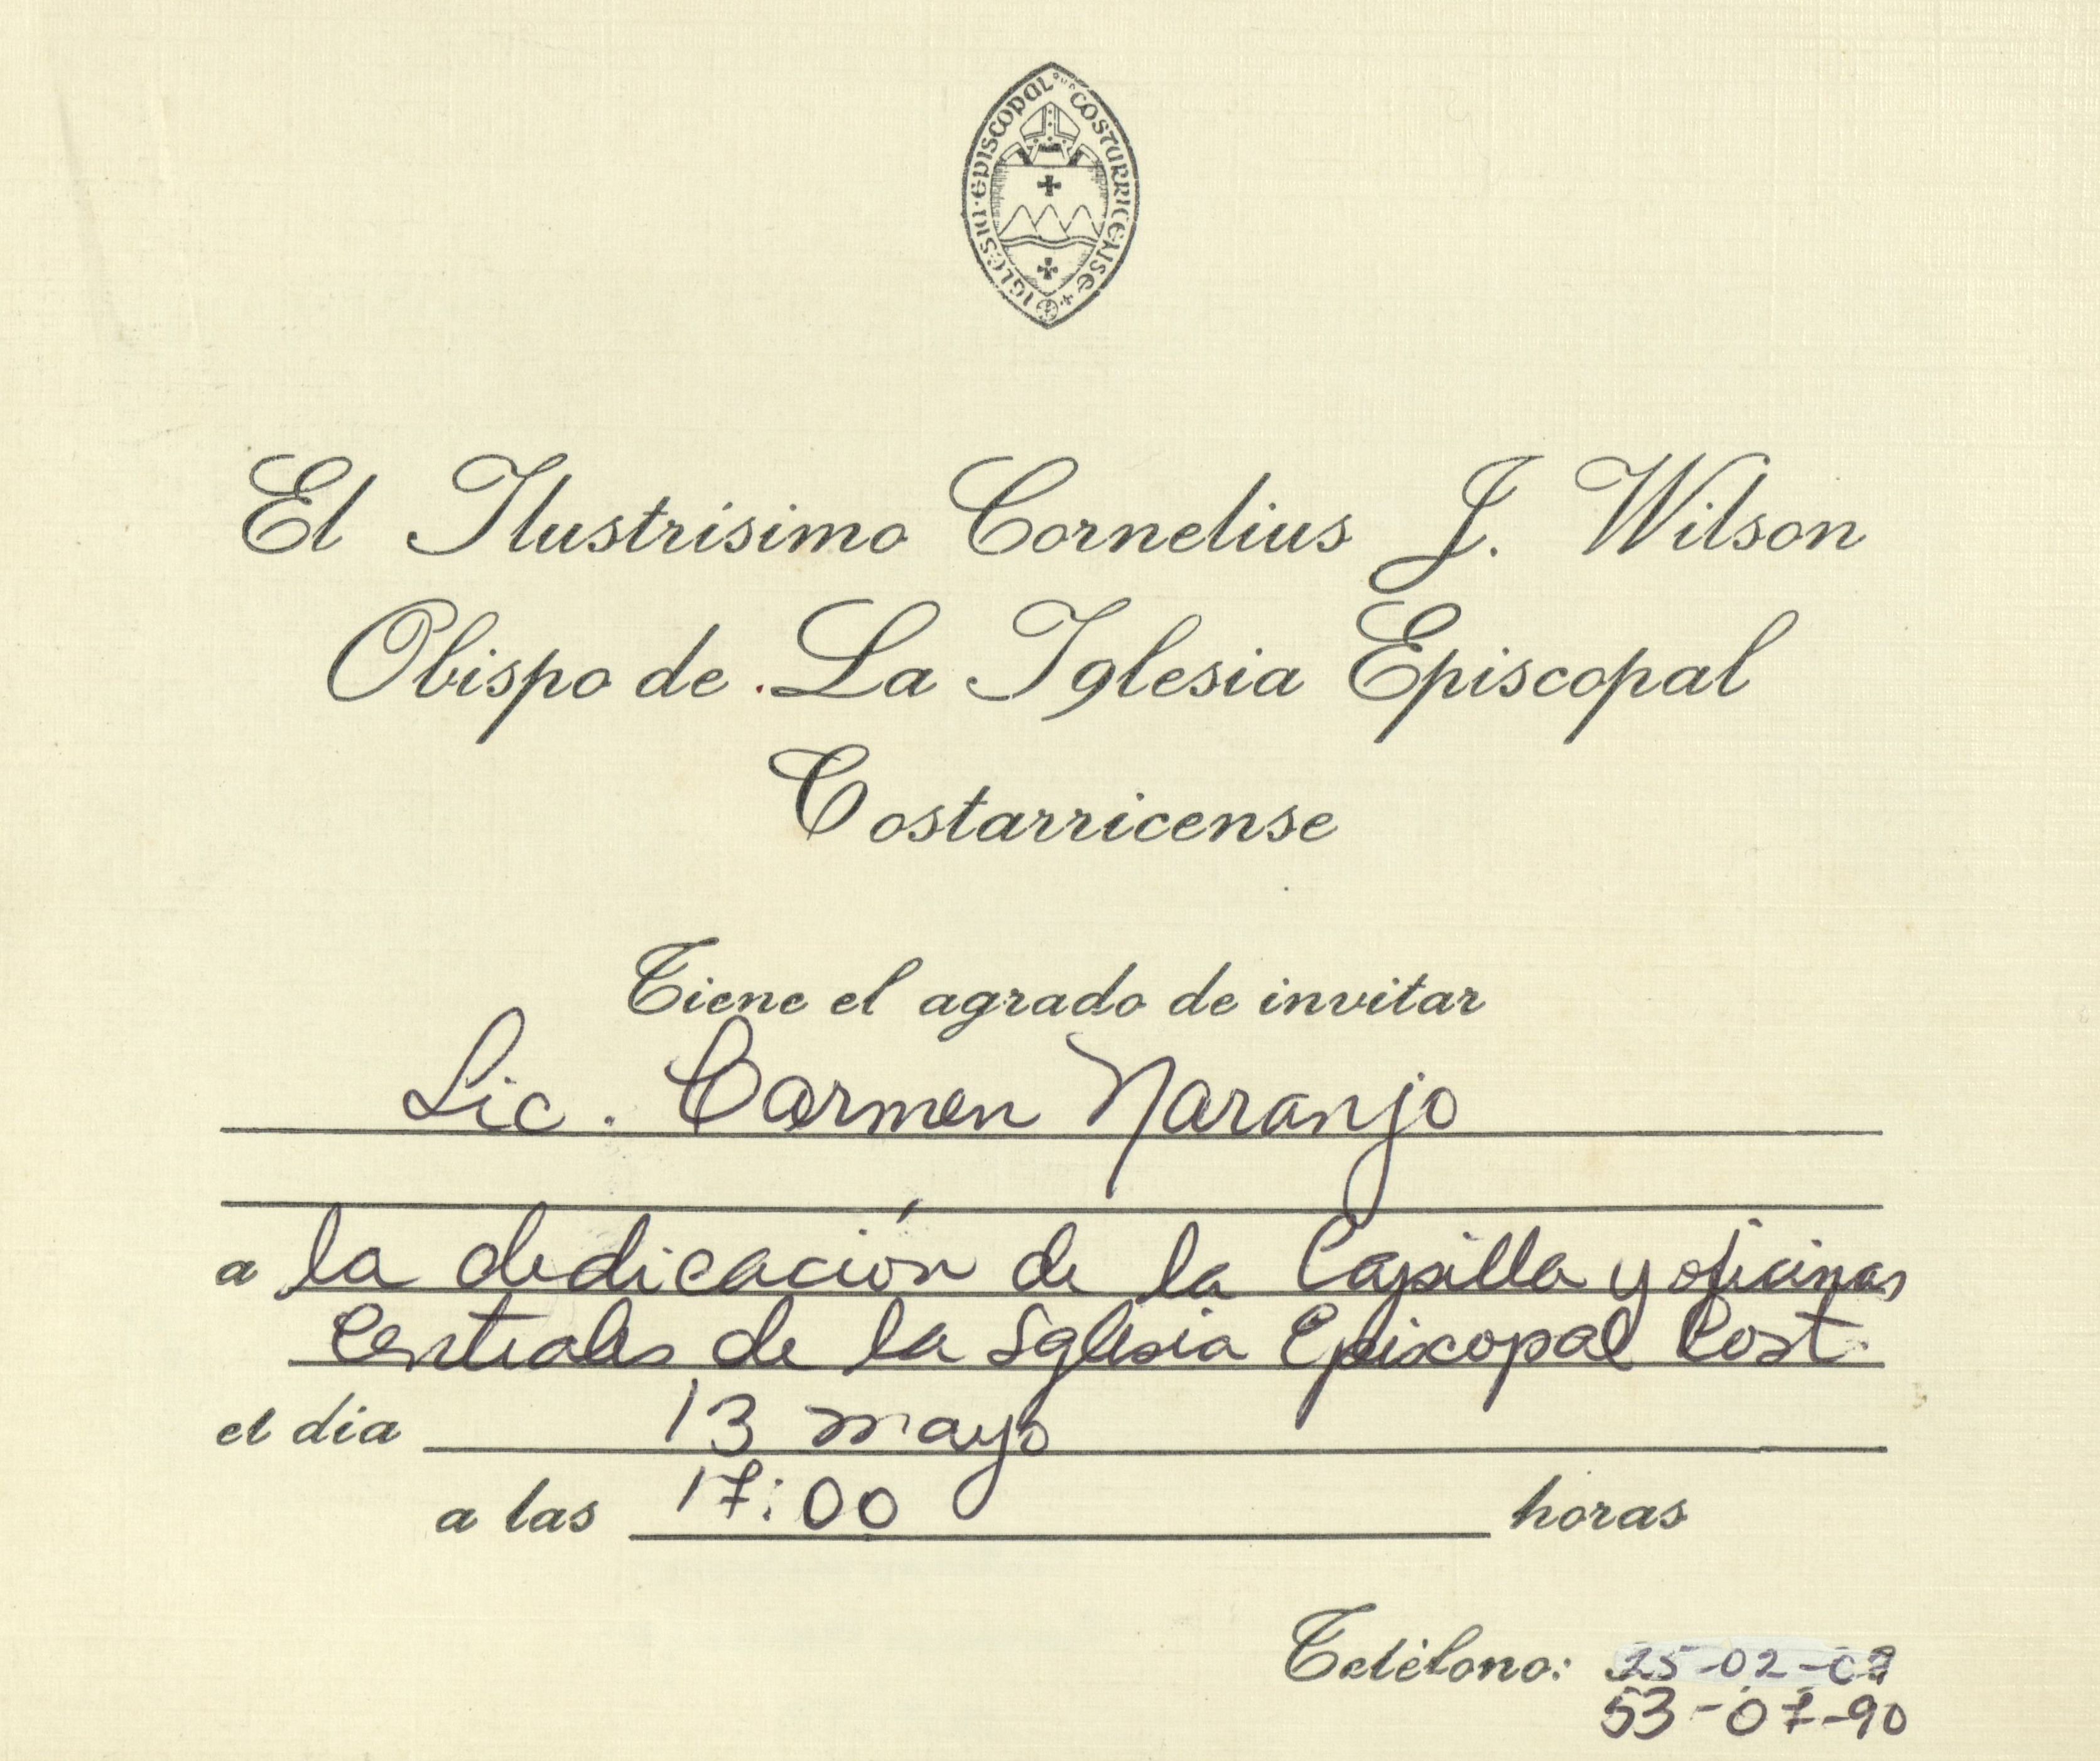 IGLESIA · EPISCOPAL COSTARRICENSE
El Ilustrísimo Cornelius J. Wilson
Obispo de La Iglesia Episcopal
Costarricense
Tiene el agrado de invitar
Lic. Carmen Naranjo
a la dedicación de la Capilla y oficinas
Centrales de la Iglesia Episcopal Cost.
el día 13 mayo
a las 17:00 horas
Teléfono: 25-02-09
53-07-90